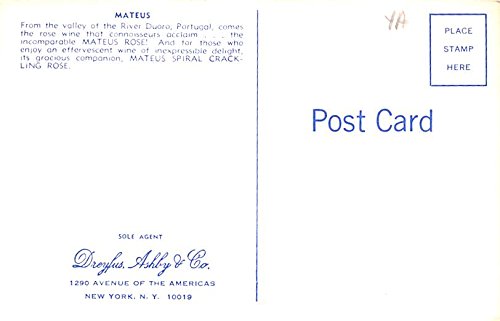 MATEUS
From the valley of the River Duoro, Portugal, comes
the rose wine that connoisseurs acclaim . . . the
incomparable MATEUS ROSE! And for those who
enjoy an effervescent wine of inexpressible delight,
its gracious companion, MATEUS SPIRAL CRACK-
LING ROSE.
YA
PLACE
STAMP
HERE
Post Card
SOLE AGENT
Dreyfus, Ashby & Co.
1290 AVENUE OF THE AMERICAS
NEW YORK, N. Y. 10019